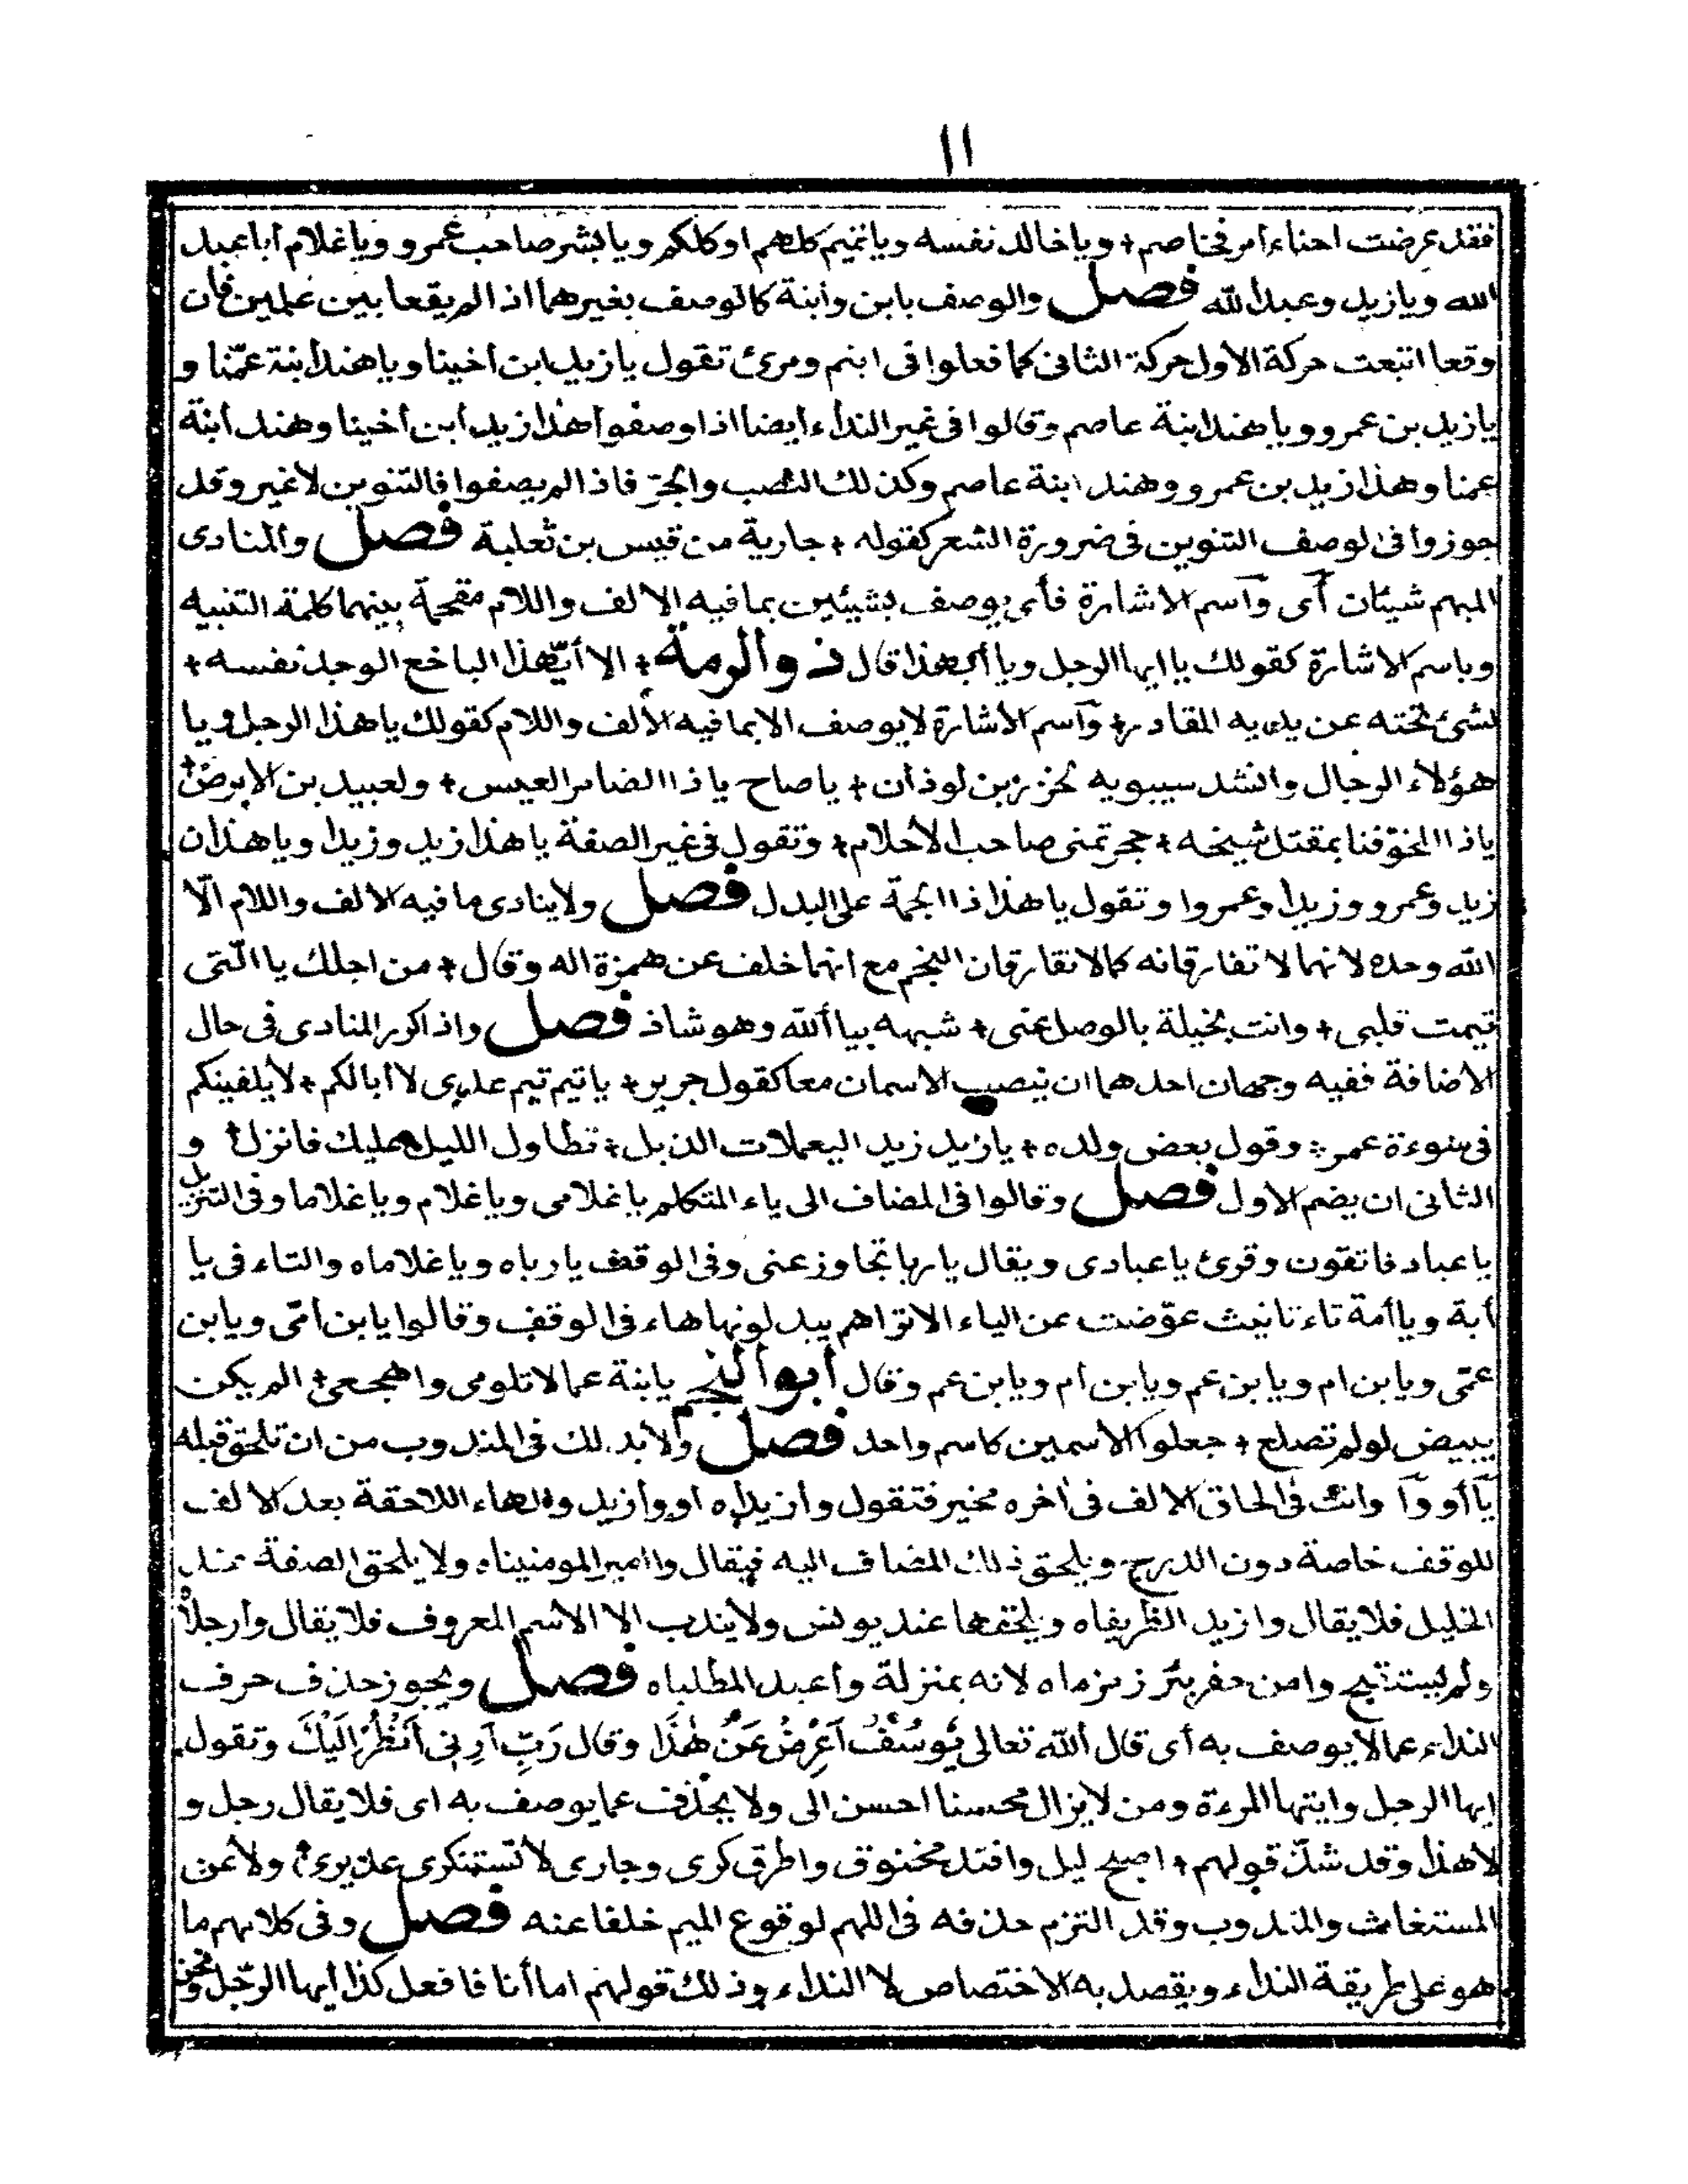 ١١
فقد عرضت احناء امر فخاصم + ويا خالد نفسه ويا تميم كلهم او كلكم ويا بشر صاحب عمرو ويا غلام أبا عبد
الله ويا زيد وعبد الله فصل والوصف بابن وأبنة كالوصف بغيرهما اذا لم يقعا بين علمين فأن
وقعا اتبعت حركة الأول حركة الثانى كما فعلوا فى ابنم ومرئ تقول يا زيد ابن أخينا ويا هند أبنة عمّنا و
يا زيد بن عمرو ويا هند ابنة عاصم وقالوا فى غير النداء أيضا اذا وصفوا هذا زيد أبن أخينا وهند أبنة
عمنا وهذا زيد بن عمرو وهند ابنة عاصم وكذلك النصب والجرّ فاذا لم يصفوا فالتنوين لا غير وقد
جوزوا فى الوصف التنوين فى ضرورة الشعر كقوله + جارية من قيس بن ثعلبة فصل والمنادى
المبهم شيئان أى وآسم الاشارة فأى يوصف بشيئين بما فيه الالف واللام مقحمة بينهما كلمة التنبيه
وباسم الاشارة كقولك يا ايها الرجل ويا أيهذا قال ذو الرمة + الا أيّهذا الباخع الوجد نفسه +
لشئ نحته عن يديه المقادر + وآسم الأشارة لا يوصف الا بما فيه الألف واللام كقولك يا هذا الرجل ويا
هؤلاء الرجال وانشد سيبويه لخزز بن لوذان + يا صاح يا ذا الضامر العيس + ولعبيد بن الابرص +
يا ذا المخوّفنا بمقتل شيخه + حجر تمنى صاحب الأحلام + وتقول فى غير الصفة يا هذا زيد وزيدا ويا هذان
زيد وعمرو وزيدا وعمروا وتقول يا هذا ذا الجمة على البدل فصل ولا ينادى ما فيه الالف واللام الّا
الله وحده لانهما لا تفارقانه كما لا تفارقان النجم مع انهما خلف عن همزة اله وقال + من اجلك يا الّتى
تيمت قلبى + وانت بخيلة بالوصل عنى + شبهه بيا ألله وهو شاذ فصل واذا كرر المنادى فى حال
الاضافة ففيه وجهان احدهما ان ينصب الاسمان معا كقول جرير + يا تيم تيم عدى لا أبا لكم + لا يلفينكم
فى سوءة عمر + وقول بعض ولده + يا زيد زيد اليعملات الذبل + تطاول الليل عليك فانزل + و
الثانى ان يضم الاول فصل وقالوا فى المضاف الى ياء المتكلم يا غلامى ويا غلام ويا غلاما وفى التنزيل
يا عباد فاتقون وقرئ يا عبادى ويقال يا ربا تجاوز عنى وفى الوقف يا رباه ويا غلاماه والتاء فى يا
أبة ويا أمة تاء تانيث عوّضت عن الياء الا تراهم يبدلونها هاء فى الوقف وقالوا يا بن أمّى ويا بن
عمّى ويا بن ام ويا بن عم ويا بن أم ويا بن عم وقال أبو النجم يا بنة عما لا تلومى واهجعى + الم يكن
يبيض لو لم تصلع + جعلوا الاسمين كاسم واحد فصل ولا بد لك فى المندوب من ان تلحق قبله
يا أو وا وانت فى الحاق الالف فى آخره مخير فتقول وا زيداه او وا زيد والهاء اللاحقة بعد الالف
للوقف خاصة دون الدرج ويلحق ذلك المضاف اليه فيقال وا امير المومنيناه ولا يلحق الصفة عند
الخليل فلا يقال وا زيد الظريفاه ويلحقها عند يونس ولا يندب الا الاسم المعروف فلا يقال وا رجلاه
ولم يستقبح وا من حفر بئر زمزماه لانه بمنزلة وا عبد المطلباه فصل ويجوز حذف حرف
النداء عما لا يوصف به أى قال ألله تعالى يُوسُفُ أَعْرِضْ عَنْ هٰذَا وقال رَبِّ أَرِنِى أَنْظُرْ إِلَيْكَ وتقول
ايها الرجل وايتها المرءة ومن لا يزال محسنا احسن الى ولا يحذف عما يوصف به اى فلا يقال رجل و
لا هذا وقد شذّ قولهم + اصبح ليل وافتد مخنوق واطرق كرى وجارى لا تستنكرى عذيرى + ولا عن
المستغاث والمندوب وقد التزم حذفه فى اللهم لوقوع الميم خلفا عنه فصل وفى كلامهم ما
هو على طريقة النداء ويقصد به الاختصاص لا النداء وذلك قولهم اما أنا فافعل كذا أيها الرّجل ونحن